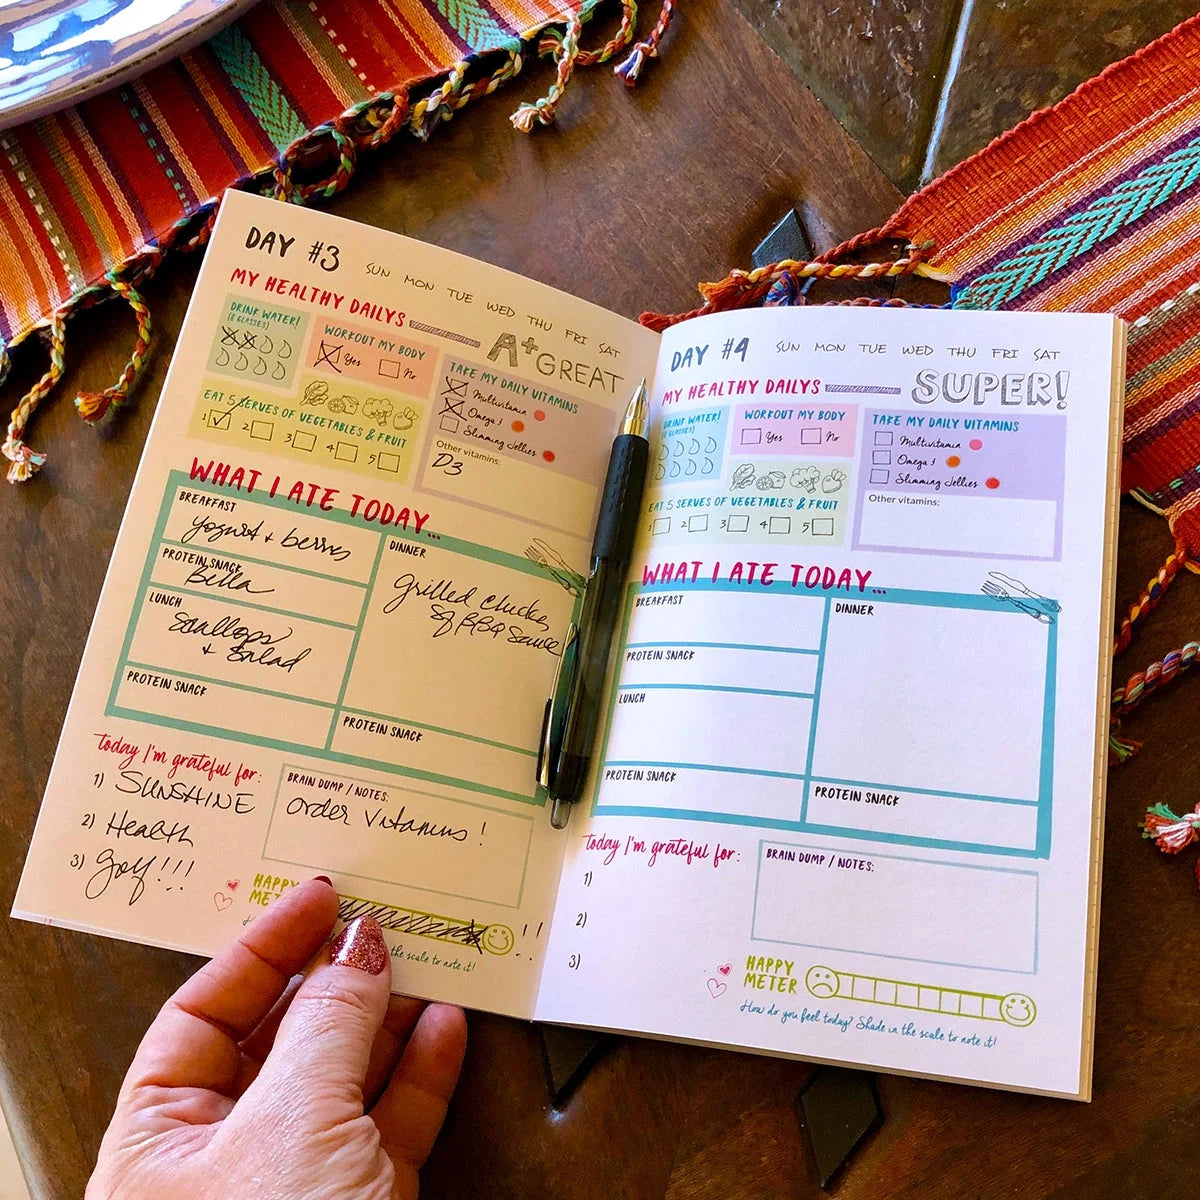 DAY #3
SUN MON TUE WED THU FRI SAT
MY HEALTHY DAILYS
A+ GREAT
DRINK WATER!
(8 GLASSES)
WORKOUT MY BODY
Yes No
TAKE MY DAILY VITAMINS
Multivitamin
Omega 3
Slimming Jellies
Other vitamins:
D3
EAT 5 SERVES OF VEGETABLES & FRUIT
1 2 3 4 5
WHAT I ATE TODAY...
BREAKFAST
Yogurt + berries
PROTEIN SNACK
Bella
LUNCH
Scallops
+ Salad
PROTEIN SNACK
DINNER
Grilled chicken
BBQ Sauce
PROTEIN SNACK
today I'm grateful for:
1) SUNSHINE
2) Health
3) !!!
BRAIN DUMP / NOTES:
order vitamins !
HAPPY
!!
the scale to note it!
DAY #4
SUN MON TUE WED THU FRI SAT
MY HEALTHY DAILYS
SUPER!
DRINK WATER!
(8 GLASSES)
WORKOUT MY BODY
Yes No
TAKE MY DAILY VITAMINS
Multivitamin
Omega 3
Slimming Jellies
Other vitamins:
EAT 5 SERVES OF VEGETABLES & FRUIT
1 2 3 4 5
WHAT I ATE TODAY...
BREAKFAST
PROTEIN SNACK
LUNCH
PROTEIN SNACK
DINNER
PROTEIN SNACK
today I'm grateful for:
1)
2)
3)
BRAIN DUMP / NOTES:
HAPPY
METER
How do you feel today? Shade in the scale to note it!